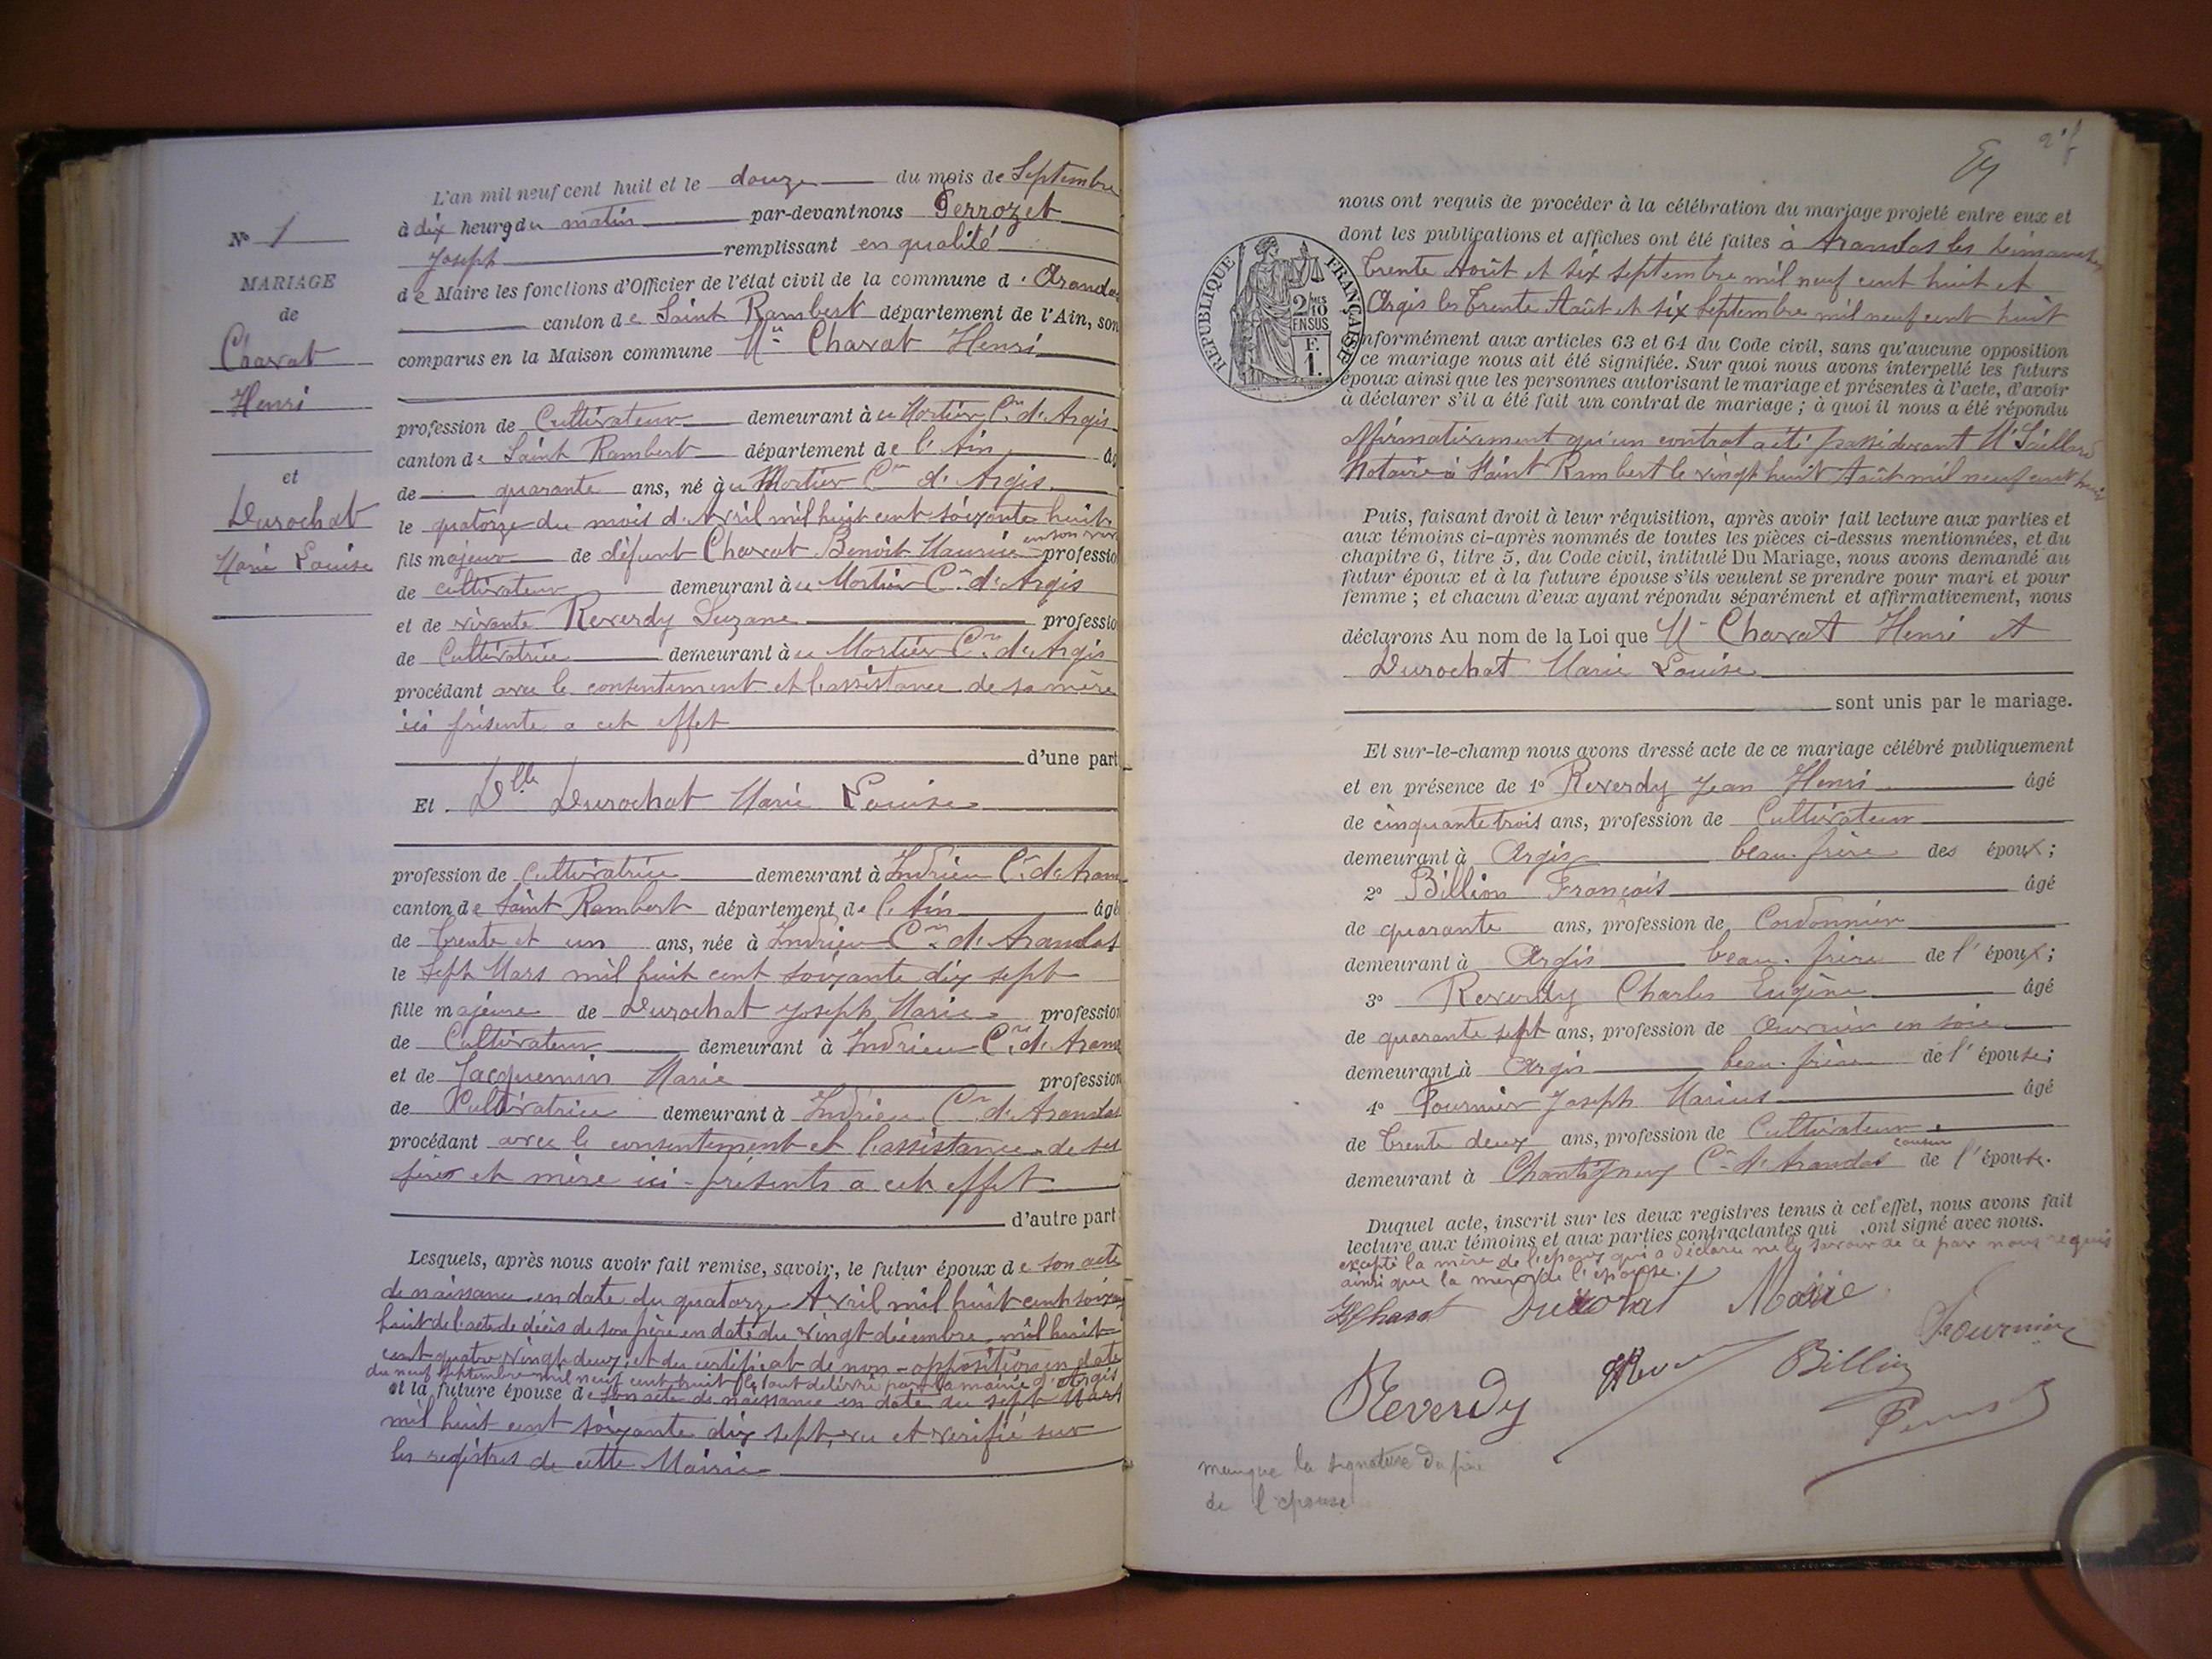 N° 1
MARIAGE
de
Charat
Henri
et
Durochat
Marie Louise
L'an mil neuf cent huit et le douze du mois de Septembre
à dix heures du matin par-devant nous Perrozet
Joseph remplissant en qualité
de Maire les fonctions d'Officier de l'état civil de la commune d'Arandas
canton de Saint Rambert département de l'Ain, son
comparus en la Maison commune Mr Charat Henri
profession de Cultivateur demeurant à au Mortier Cne d'Argis
canton de Saint Rambert département de l'Ain âg
de quarante ans, né à au Mortier Cne d'Argis
le quatorze du mois d'Avril mil huit cent soixante huit
fils majeur de défunt Charat Benoit Maurice en son viv professio
de cultivateur demeurant à au Mortier Cne d'Argis
et de vivante Reverdy Suzane professio
de Cultivatrice demeurant à au Mortier Cne d'Argis
procédant avec le consentement et l'assistance de sa mère
ici présente a cet effet
d'une part
Et Dlle Durochat Marie Louise
profession de Cultivatrice demeurant à Indrieu Cne d'Aran
canton de Saint Rambert département de l'Ain âgé
de trente et un ans, née à Indrieu Cne d'Arandas
le sept Mars mil huit cent soixante dix sept
fille majeure de Durochat Joseph Marie profession
de Cultivateur demeurant à Indrieu Cne d'Arand
et de Jacquemin Marie profession
de Cultivatrice demeurant à Indrieu Cne d'Arandas
procédant avec le consentement et l'assistance de ses
père et mère ici présents a cet effet
d'autre part
Lesquels, après nous avoir fait remise, savoir, le futur époux de son acte
de naissance en date du quatorze Avril mil huit cent soixante
huit de l'acte de décès de son père en date du vingt décembre mil huit
cent quatre vingt deux; et du certificat de non-opposition en date
du neuf septembre mil neuf cent huit le tout délivré par la mairie d'Argis
et la future épouse de son acte de naissance en date du sept Mars
mil huit cent soixante dix sept, vu et vérifié sur
les registres de cette Mairie
nous ont requis de procéder à la célébration du mariage projeté entre eux et
dont les publications et affiches ont été faites à Arandas les dimanches
trente Août et six septembre mil neuf cent huit et
Argis les trente Août et six septembre mil neuf cent huit
RÉPUBLIQUE FRANÇAISE
2/10 EN SUS
F.
1.
nformément aux articles 63 et 64 du Code civil, sans qu'aucune opposition
ce mariage nous ait été signifiée. Sur quoi nous avons interpellé les futurs
époux ainsi que les personnes autorisant le mariage et présentes à l'acte, d'avoir
à déclarer s'il a été fait un contrat de mariage; à quoi il nous a été répondu
affirmativement qu'un contrat a été passé devant Me Saillard
Notaire à Saint Rambert le vingt huit Août mil neuf cent huit
Puis, faisant droit à leur réquisition, après avoir fait lecture aux parties et
aux témoins ci-après nommés de toutes les pièces ci-dessus mentionnées, et du
chapitre 6, titre 5, du Code civil, intitulé Du Mariage, nous avons demandé au
futur époux et à la future épouse s'ils veulent se prendre pour mari et pour
femme; et chacun d'eux ayant répondu séparément et affirmativement, nous
déclarons Au nom de la Loi que Mr Charat Henri et
Durochat Marie Louise
sont unis par le mariage.
Et sur-le-champ nous avons dressé acte de ce mariage célébré publiquement
et en présence de 1° Reverdy Jean Henri âgé
de cinquante trois ans, profession de Cultivateur
demeurant à Argis beau-frère des époux;
2° Billion François âgé
de quarante ans, profession de Cordonnier
demeurant à Argis beau-frère de l'époux;
3° Reverdy Charles Eugène âgé
de quarante sept ans, profession de Ouvrier en soie
demeurant à Argis beau-frère de l'épouse;
4° Fournier Joseph Marius âgé
de trente deux ans, profession de Cultivateur
demeurant à Chantigneux Cne d'Arandas cousin de l'épouse.
Duquel acte, inscrit sur les deux registres tenus à cet effet, nous avons fait
lecture aux témoins et aux parties contractantes qui ont signé avec nous.
excepté la mère de l'époux qui a déclaré ne le savoir de ce par nous requis
ainsi que la mère de l'épouse.
H Charat Durochat Marie
Fournier
Reverdy Billion
manque la signature du père
de l'épouse